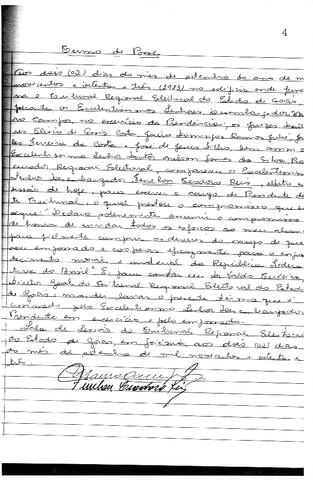 4
Termo de Posse
Aos dois (02) dias do mês de setembro do ano de mil
novecentos e setenta e três (1973) no edifício onde
na o Tribunal Regional Eleitoral do Estado de Goiás,
perante os Excelentíssimos Senhores Desembargador
Campos, no exercício da Presidência; os juízes
Elísio de Assis Costa, Domingos Ramos
Ferreira da Costa e José de Jesus Filho, bem assim o
Excelentíssimo Senhor Doutor da Silva, Pro
curador Regional Eleitoral, compareceu o Excelentíssimo
Senhor Desembargador Fenelon Teodoro Reis, eleito
de hoje, para exercer o cargo de Presidente des
te Tribunal, o qual prestou o compromisso que se
segue: "Declaro solenemente assumir o compromisso
de honra de envidar todos os esforços ao meu alcance
para fielmente cumprir os deveres do cargo de que
sou empossado e cooperar eficazmente para o engran
decimento moral e material da República Federa
tiva do Brasil". E, para constar eu
Diretor Geral do Tribunal Regional Eleitoral do Estado
de Goiás mandei lavrar o presente termo que é
assinado pelo Excelentíssimo Senhor Desembargador
Presidente em exercício e pelo empossado.
Sala de Sessões do Tribunal Regional Eleitoral
do Estado de Goiás, em Goiânia, aos dois (02) dias
do mês de setembro de mil novecentos e setenta e
três
Fenelon Teodoro Reis